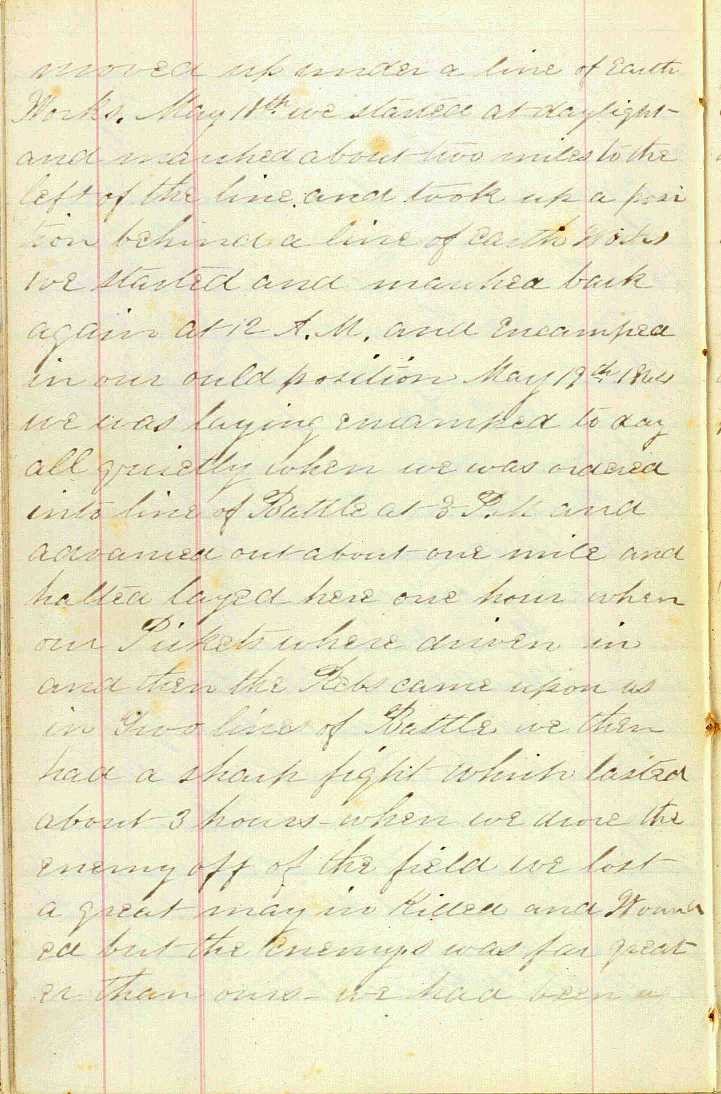 moved up under a line of Earth
Works. May 18th we started at daylight
and marched about two miles to the
left of the line and took up a posi
tion behind a line of earth Works
we started and marched back
again at 12 A.M. and Encamped
in our ould position May 19th 1864
we was laying encamped to day
all quietly when we was ordered
into line of Battle at 3 P.M and
advanced out about one mile and
halted layed here one hour when
our Pickets where driven in
and then the Rebs came upon us
in Two lines of Battle we then
had a sharp fight which lasted
about 3 hours - when we drove the
enemy off of the field we lost
a great many in Killed and Wound
ed but the Enemys was far great
er than ours - we had been